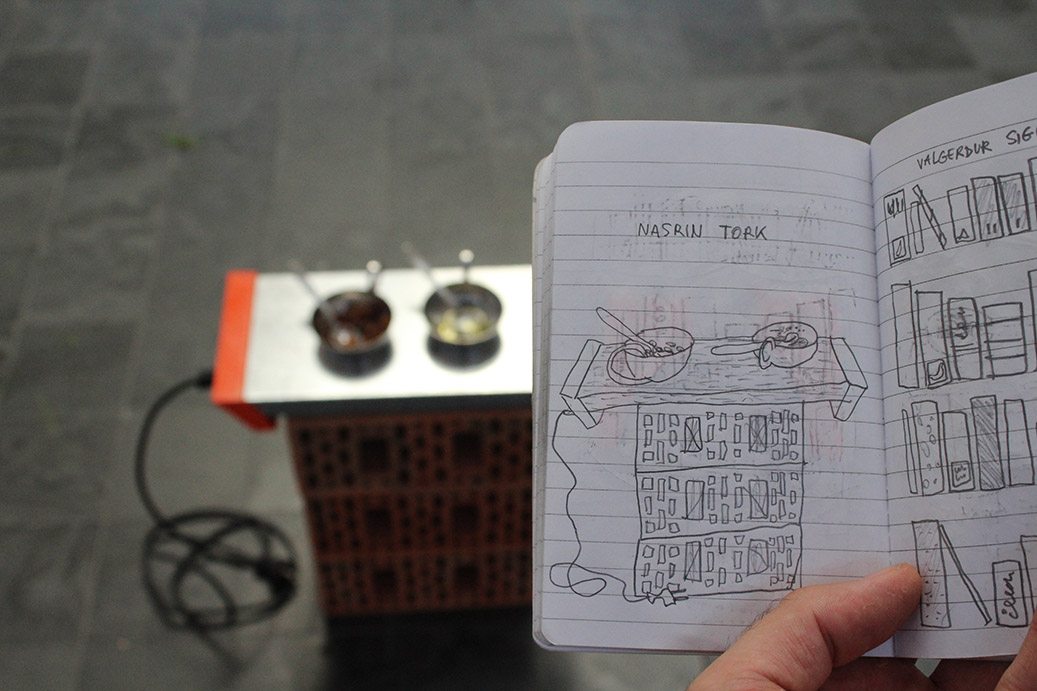 NASRIN TORK
VALGERDUR SIG